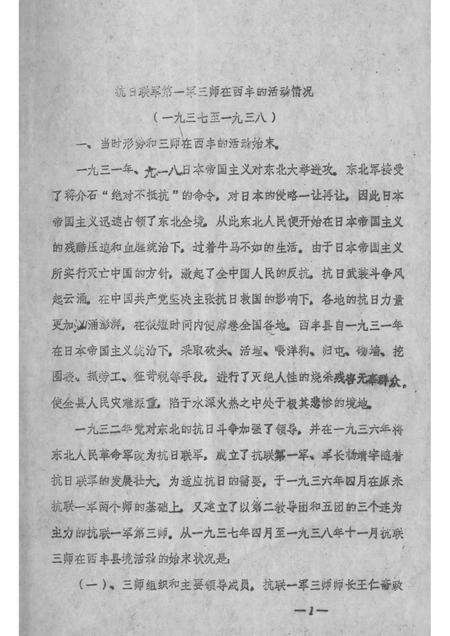 抗日联军第一军三师在西丰的活动情况
（一九三七至一九三八）
一、当时形势和三师在西丰的活动始末。
一九三一年、九·一八日本帝国主义对东北大举进攻。东北军接受
了蒋介石“绝对不抵抗”的命令，对日本的侵略一让再让，因此日本
帝国主义迅速占领了东北全境。从此东北人民便开始在日本帝国主义
的残酷压迫和血腥统治下，过着牛马不如的生活。由于日本帝国主义
所实行灭亡中国的方针，激起了全中国人民的反抗。抗日武装斗争风
起云涌。在中国共产党坚决主张抗日救国的影响下，各地的抗日力量
更加汹涌澎湃，在很短时间内便席卷全国各地。西丰县自一九三一年
在日本帝国主义统治下，采取砍头、活埋、喂洋狗、归屯、修墙、挖
围壕、抓劳工、征苛税等手段，进行了灭绝人性的烧杀残害无辜群众。
使全县人民灾难深重，陷于水深火热之中处于极其悲惨的境地。
一九三二年党对东北的抗日斗争加强了领导，并在一九三六年将
东北人民革命军改为抗日联军，成立了抗联第一军、军长杨靖宇随着
抗日联军的发展壮大，为适应抗日的需要，于一九三六年四月在原来
抗联一军两个师的基础上，又建立了以第二教导团和五团的三个连为
主力的抗联一军第三师。从一九三七年四月至一九三八年十一月抗联
三师在西丰县境活动的始末状况是：
（一）、三师组织和主要领导成员。抗联一军三师师长王仁斋政
—1—